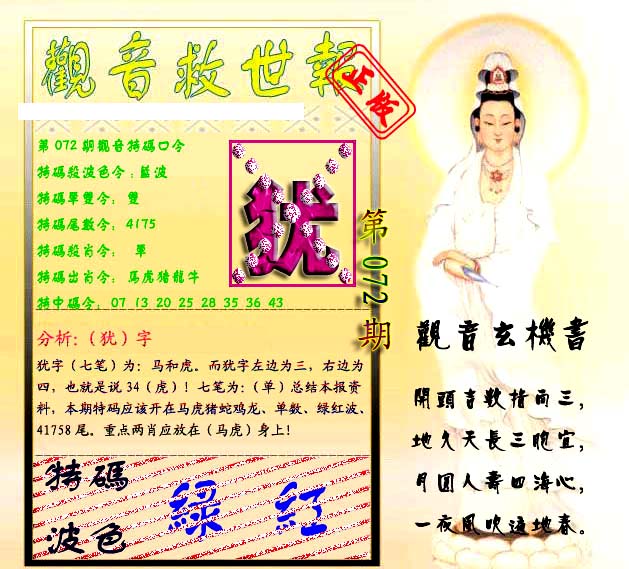 觀音救世報
正版
第072期觀音特碼口令
特碼殺波色令:藍波
特碼單雙令: 雙
特碼尾數令: 4175
特碼殺肖令: 單
特碼出肖令: 馬虎猪龍牛
特中碼令: 07 13 20 25 28 35 36 43
犹
第072期
分析:(犹)字
犹字(七笔)为:马和虎。而犹字左边为三,右边为
四,也就是说34(虎)!七笔为:(单)总结本报资
料,本期特码应该开在马虎猪蛇鸡龙、单数、绿红波、
41758尾。重点两肖应放在(马虎)身上!
特碼
波色
綠 紅
觀音玄機書
開頭吉數指南三,
地久天長三晚宜,
月圓人壽四海心,
一夜風吹遍地春。